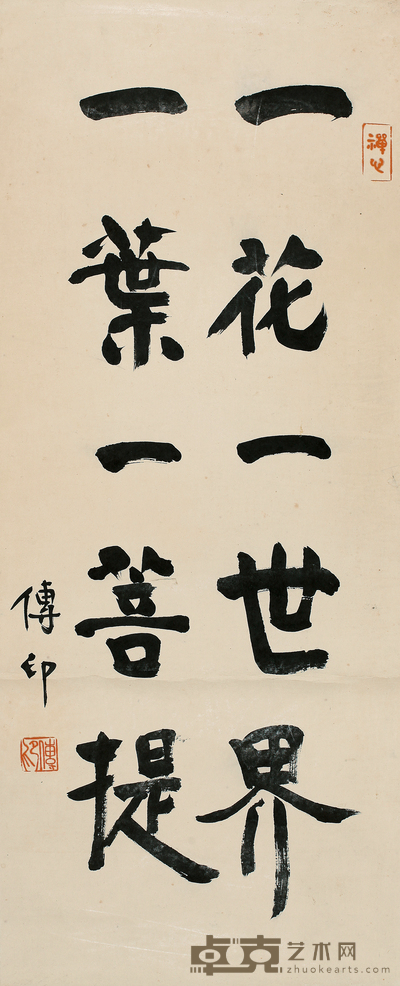 一花一世界
一葉一菩提
傳印
禪心
傳印
卓克艺术网
zhuokearts.com